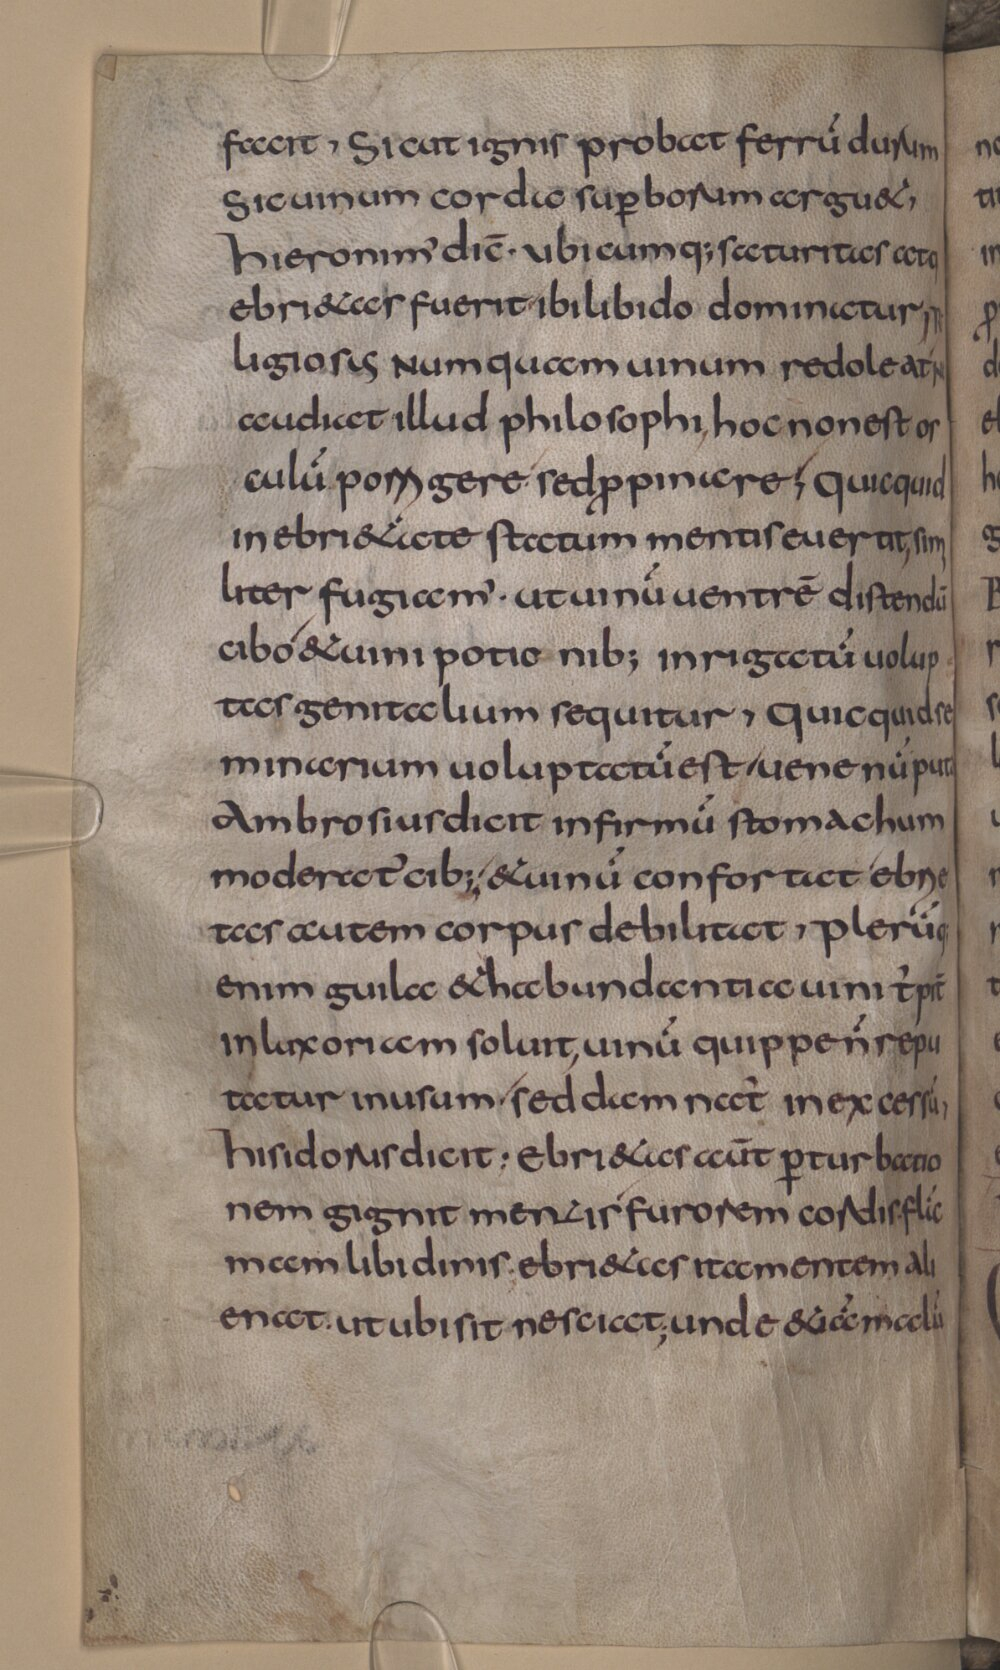 facit, Sicut ignis probat ferrū durum
Sic uinum corda suꝑborum arguet,
hieronim᾽ dic̄· ubicumq; saturitas atq
ebrietas fuerit ibi libido dominatur,
ligiosis Numquam uinum redoleat
audiat illud philosophi, hoc non est os
culū porrigere sed ꝓpinare; Quicquid
in ebrietate statum mentis euertit, sim
liter fugiam᾽· ut uinū uentrē distendū
cibo & uini potionib; inrigatū uolup
tas genitalium sequitur, Quicquid se
minarium uoluptatū est uenenū put
Ambrosius dicit infirmū stomachum
moderat᾽ cib; & uinū confortat ebrie
tas autem corpus debilitat, plerūq
enim guila & habundantia uini
in luxoriam soluit, uinū quippe n̄ repu
tatur in usum sed damnat᾽ in excessū,
hisidorus dicit· Ebrietas aūt ꝑturbatio
nem gignit mentis furorem cordis flā
mam libidinis. ebrietas ita mentem ali
enat. ut ubi sit nesciat; unde & iā malū